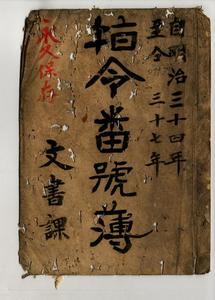 自明治三十四年
至仝 三十七年
指令番號簿
文書課
永久保存